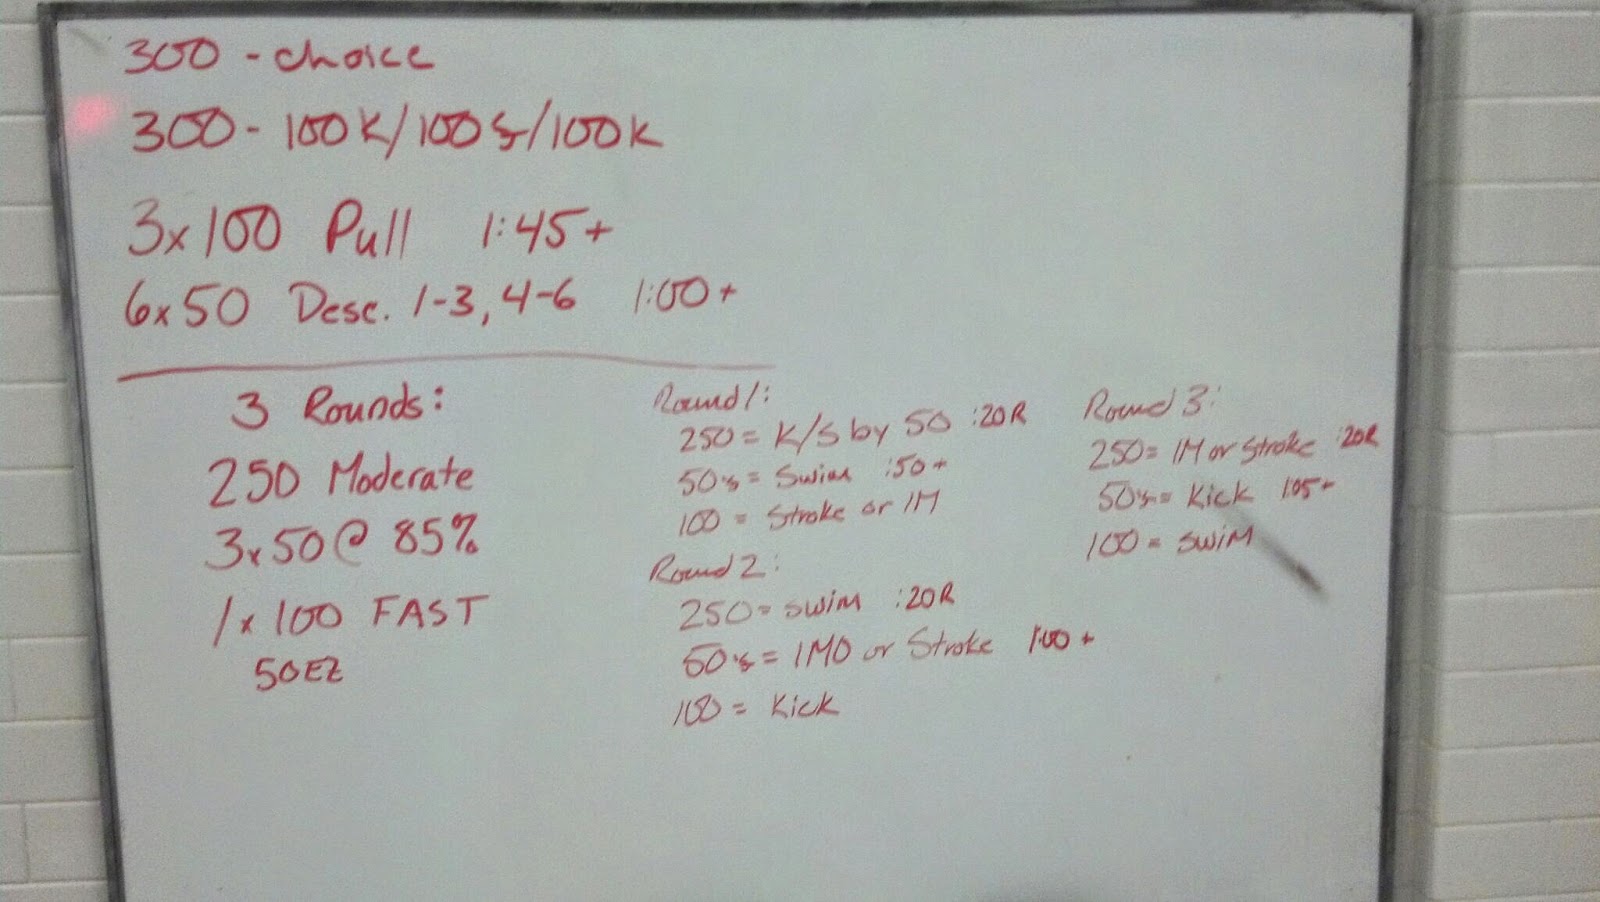 300 - choice
300 - 100K/100s/100K
3x100 Pull 1:45+
6x50 Desc. 1-3, 4-6 1:00+
3 Rounds:
250 Moderate
3x50@ 85%
1x100 FAST
50EZ
Round 1:
250 = K/S by 50 :20R
50's = Swim :50+
100 = Stroke or IM
Round 2:
250 = swim :20R
50's = IMO or Stroke 1:00+
100 = Kick
Round 3:
250 = IM or Stroke :20R
50's = Kick 1:05+
100 = swim